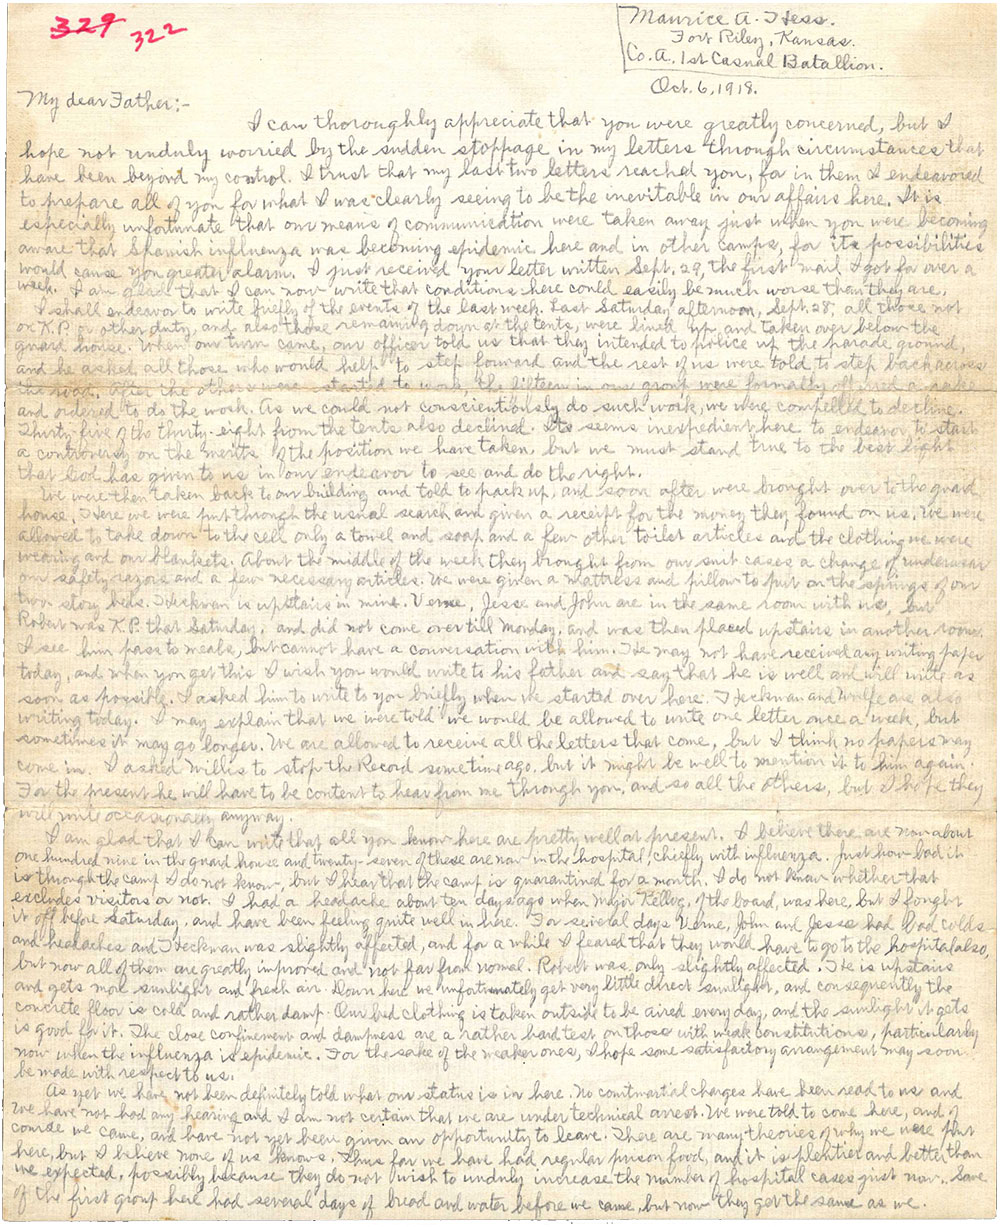 329 322
Maurice A. Hess.
Fort Riley, Kansas.
Co. A. 1st Casual Batallion.
Oct. 6, 1918.
My dear Father:-
I can thoroughly appreciate that you were greatly concerned, but I
hope not unduly worried by the sudden stoppage in my letters through circumstances that
have been beyond my control. I trust that my last two letters reached you, for in them I endeavored
to prepare all of you for what I was clearly seeing to be the inevitable in our affairs here. It is
especially unfortunate that our means of communication were taken away just when you were becoming
aware that Spanish influenza was becoming epidemic here and in other camps, for its possibilities
would cause you greater alarm. I just received your letter written Sept. 29, the first mail I got for over a
week. I am glad that I can now write that conditions here could easily be much worse than they are.
I shall endeavor to write briefly of the events of the last week. Last Saturday afternoon, Sept. 28, all those not
on K.P. or other duty, and also those remaining down at the tents, were lined up and taken over below the
guard house. When our turn came, our officer told us that they intended to police up the parade ground,
and he asked all those who would help to step forward and the rest of us were told to step back across
the road. After the others were started to work the fifteen in our group were formally offered a rake
and ordered to do the work. As we could not conscientiously do such work, we were compelled to decline.
Thirty-five of the thirty-eight from the tents also declined. It seems inexpedient here to endeavor to start
a controversy on the merits of the position we have taken, but we must stand true to the best light
that God has given to us in our endeavor to see and do the right.
We were then taken back to our building and told to pack up, and soon after were brought over to the guard
house. Here we were put through the usual search and given a receipt for the money they found on us. We were
allowed to take down to the cell only a towel and soap and a few other toilet articles and the clothing we were
wearing and our blankets. About the middle of the week they brought from our suit cases a change of underwear
our safety razors and a few necessary articles. We were given a mattress and pillow to put on the springs of our
two story beds. Heckman is upstairs in mine. Verne, Jesse and John are in the same room with us, but
Robert was K.P. that Saturday, and did not come over till Monday, and was then placed upstairs in another room.
I see him pass to meals, but cannot have a conversation with him. He may not have received any writing paper
today, and when you get this I wish you would write to his father and say that he is well and will write as
soon as possible. I asked him to write to you briefly when we started over here. Heckman and Wolfe are also
writing today. I may explain that we were told we would be allowed to write one letter once a week, but
sometimes it may go longer. We are allowed to receive all the letters that come, but I think no papers may
come in. I asked Willis to stop the Record some time ago, but it might be well to mention it to him again.
For the present he will have to be content to hear from me through you, and so all the others, but I hope they
will write occasionally anyway.
I am glad that I can write that all you know here are pretty well at present. I believe there are now about
one hundred nine in the guard house and twenty-seven of these are now in the hospital, chiefly with influenza. Just how bad it
is through the camp I do not know, but I hear that the camp is quarantined for a month. I do not know whether that
excludes visitors or not. I had a headache about ten days ago when Major Kellog, of the board, was here, but I fought
it off before Saturday, and have been feeling quite well in here. For several days Verne, John and Jesse had bad colds
and headaches and Heckman was slightly affected, and for a while I feared that they would have to go to the hospital also,
but now all of them are greatly improved and not far from normal. Robert was only slightly affected. He is upstairs
and gets more sunlight and fresh air. Down here we unfortunately get very little direct sunlight, and consequently the
concrete floor is cold and rather damp. Our bed clothing is taken outside to be aired every day, and the sunlight it gets
is good for it. The close confinement and dampness are a rather hard test on those with weak constitutions, particularly
now when the influenza is epidemic. For the sake of the weaker ones, I hope some satisfactory arrangement may soon
be made with respect to us.
As yet we have not been definitely told what our status is in here. No courtmartial charges have been read to us and
we have not had any hearing and I am not certain that we are under technical arrest. We were told to come here, and of
course we came, and have not yet been given an opportunity to leave. There are many theories of why we were put
here, but I believe none of us knows. Thus far we have had regular prison food, and it is plentier and better than
we expected, possibly because they do not wish to unduly increase the number of hospital cases just now. Some
of the first group here had several days of bread and water before we came, but now they get the same as we.